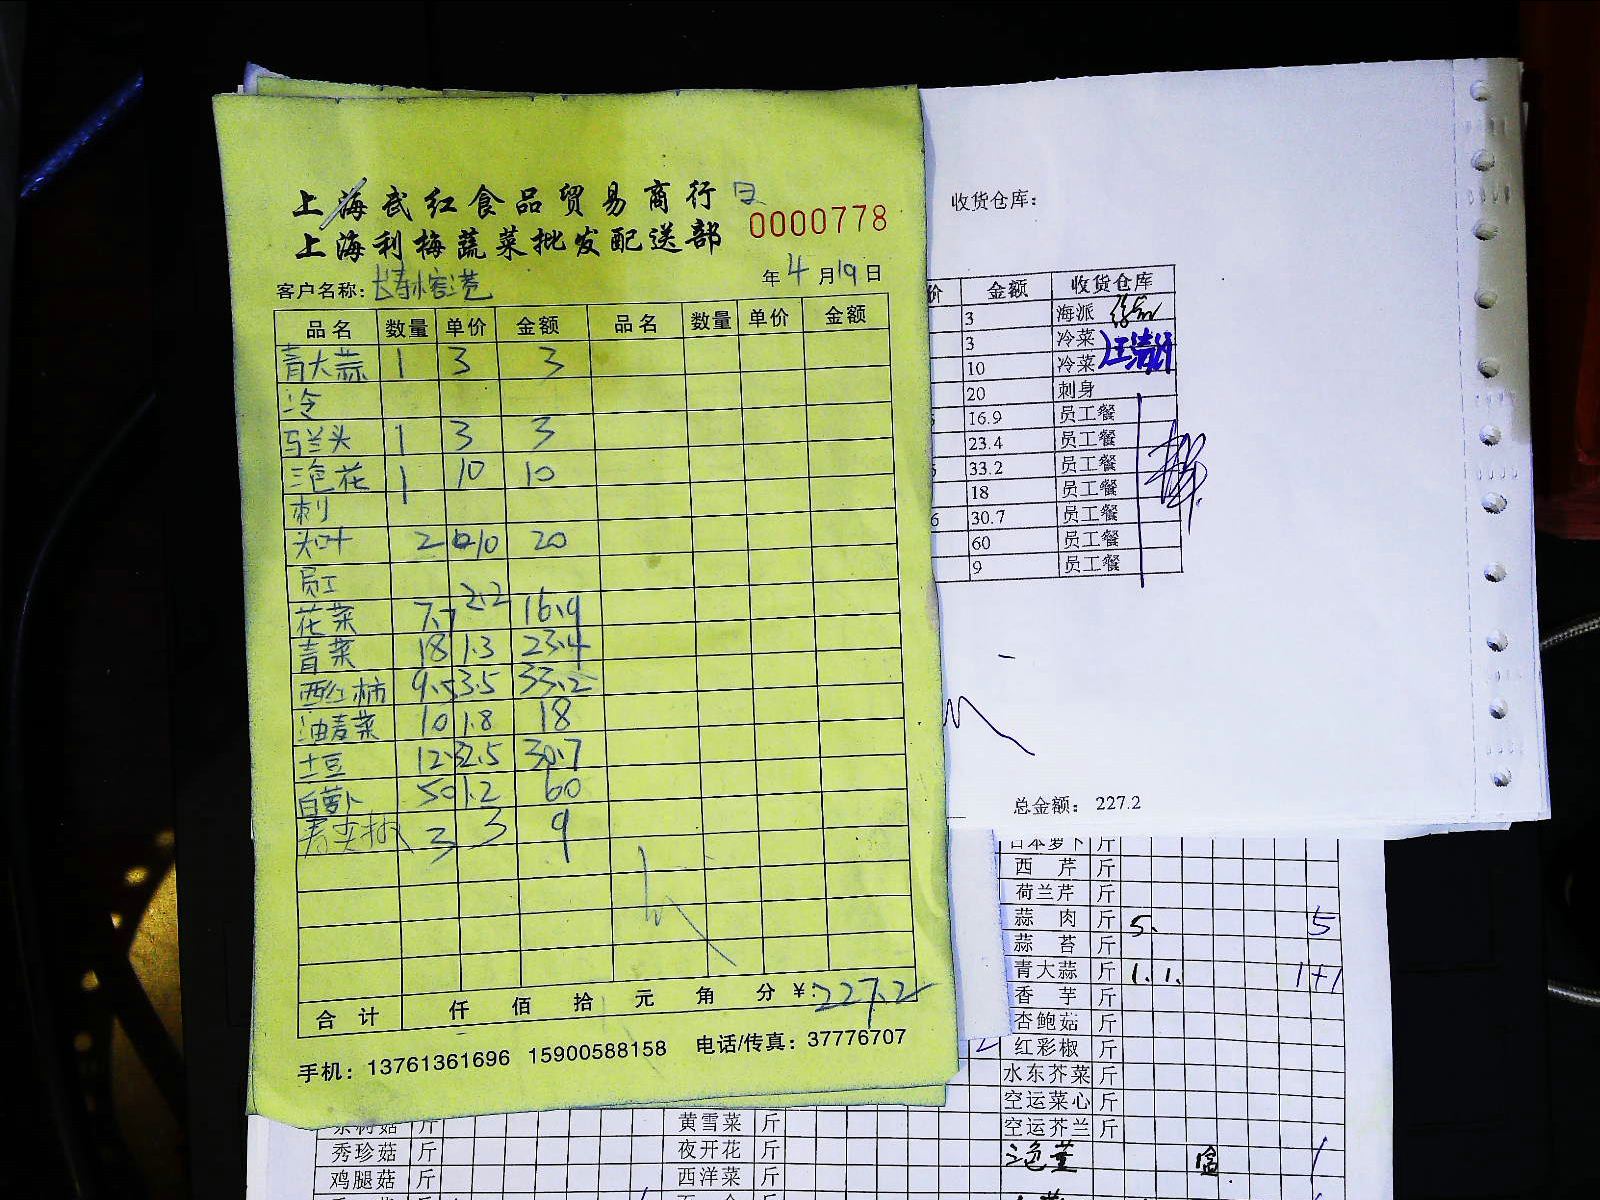 上海武红食品贸易商行
上海利梅蔬菜批发配送部
0000778
客户名称:
年 4 月 19 日
品名 数量 单价 金额 品名 数量 单价 金额
青大蒜 1 3 3
冷
马兰头 1 3 3
三色花 1 10 10
刺
头叶 2 10 20
员工
花菜 7.7 2.2 16.9
青菜 18 1.3 23.4
西红柿 9.5 3.5 33.2
油麦菜 10 1.8 18
土豆 12.3 2.5 30.7
白萝卜 50 1.2 60
3 3 9
合计 仟 佰 拾 元 角 分 ¥: 227.2
手机: 13761361696 15900588158 电话/传真: 37776707
收货仓库:
价 金额 收货仓库
3 海派
3 冷菜
10 冷菜
20 刺身
16.9 员工餐
23.4 员工餐
33.2 员工餐
18 员工餐
6 30.7 员工餐
60 员工餐
9 员工餐
总金额: 227.2
日本萝卜 斤
西芹 斤
荷兰芹 斤
蒜肉 斤 5. 5
蒜苔 斤
青大蒜 斤 1. 1. 1+1
香芋 斤
杏鲍菇 斤
红彩椒 斤
水东芥菜 斤
空运菜心 斤
空运芥兰 斤
盒 1
茶树菇 斤 黄雪菜 斤
秀珍菇 斤 夜开花 斤
鸡腿菇 斤 西洋菜 斤